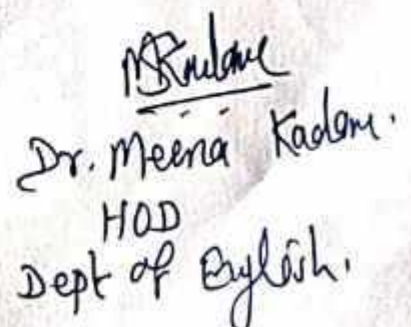 Dr. Meena Kadam.
HOD
Dept of English.